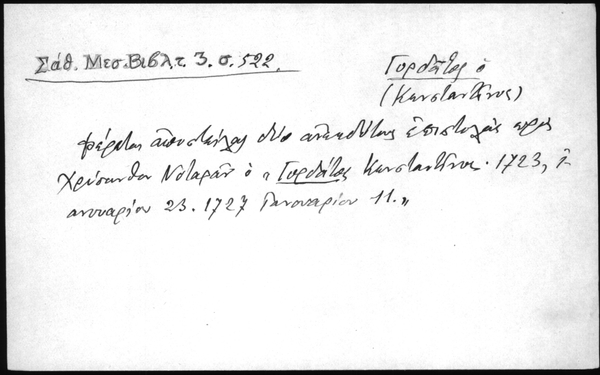 Σάθ. Μεσ. Βιβλ. τ. 3. σ. 522.
Γορδάτος ὁ
(Κωνσταντῖνος)
φέρεται ἀποστείλας δύο ἀνεκδότους ἐπιστολὰς πρὸς
Χρύσανθον Νοταρᾶν ὁ „Γορδάτος Κωνσταντῖνος. 1723, ἰ-
ανουαρίου 23. 1727 Ἰανουαρίου 11.„